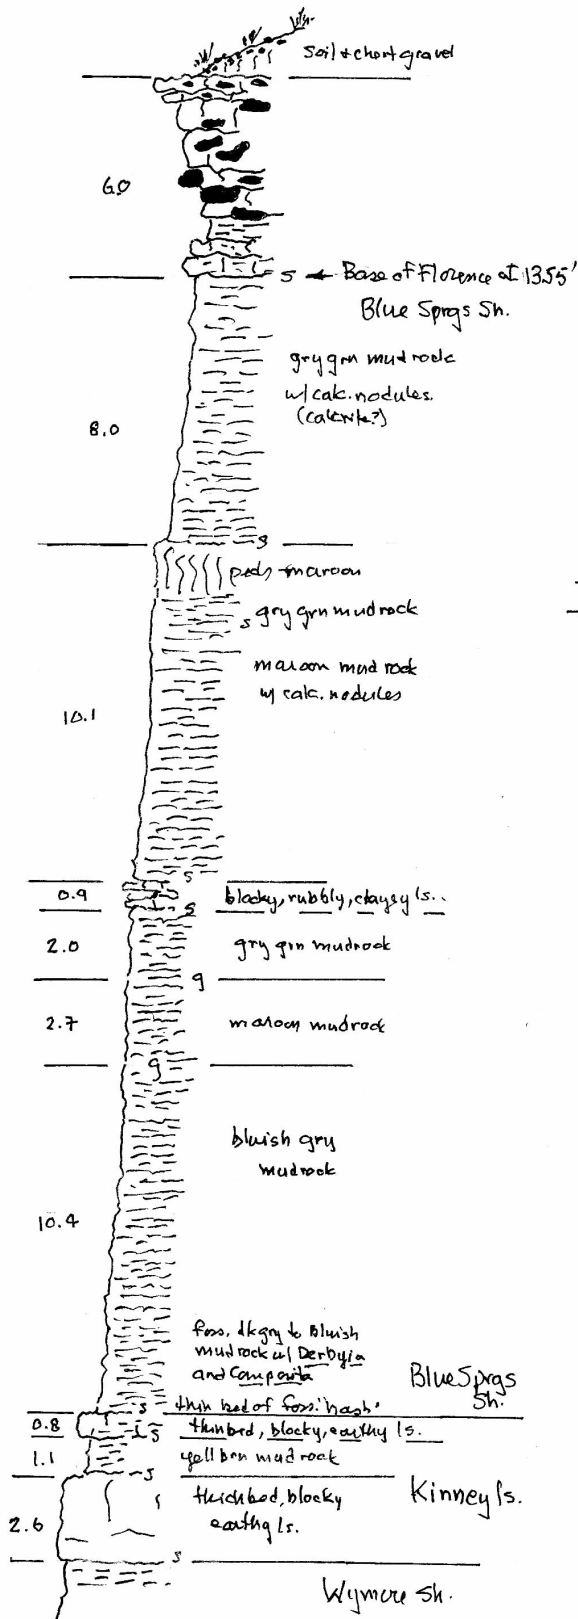 soil & chert gravel
6.0
s ← Base of Florence at 1355'
Blue Sprgs Sh.
gry grn mudrock
w/ calc. nodules.
(calcrete?)
8.0
s
peds - maroon
s gry grn mudrock
maroon mudrock
w/ calc. nodules
10.1
s
0.9 blocky, rubbly, clayey ls..
s
2.0 gry grn mudrock
g
2.7 maroon mudrock
g
bluish gry
mudrock
10.4
foss. dk gry to Bluish
mudrock w/ Derbyia
and Composita
Blue Sprgs
Sh.
s thin bed of foss. 'hash'
0.8 s thin bed, blocky, earthy ls.
1.1 yell brn mudrock
s
Kinney ls.
thick bed, blocky
earthy ls.
2.6
s
Wymore Sh.